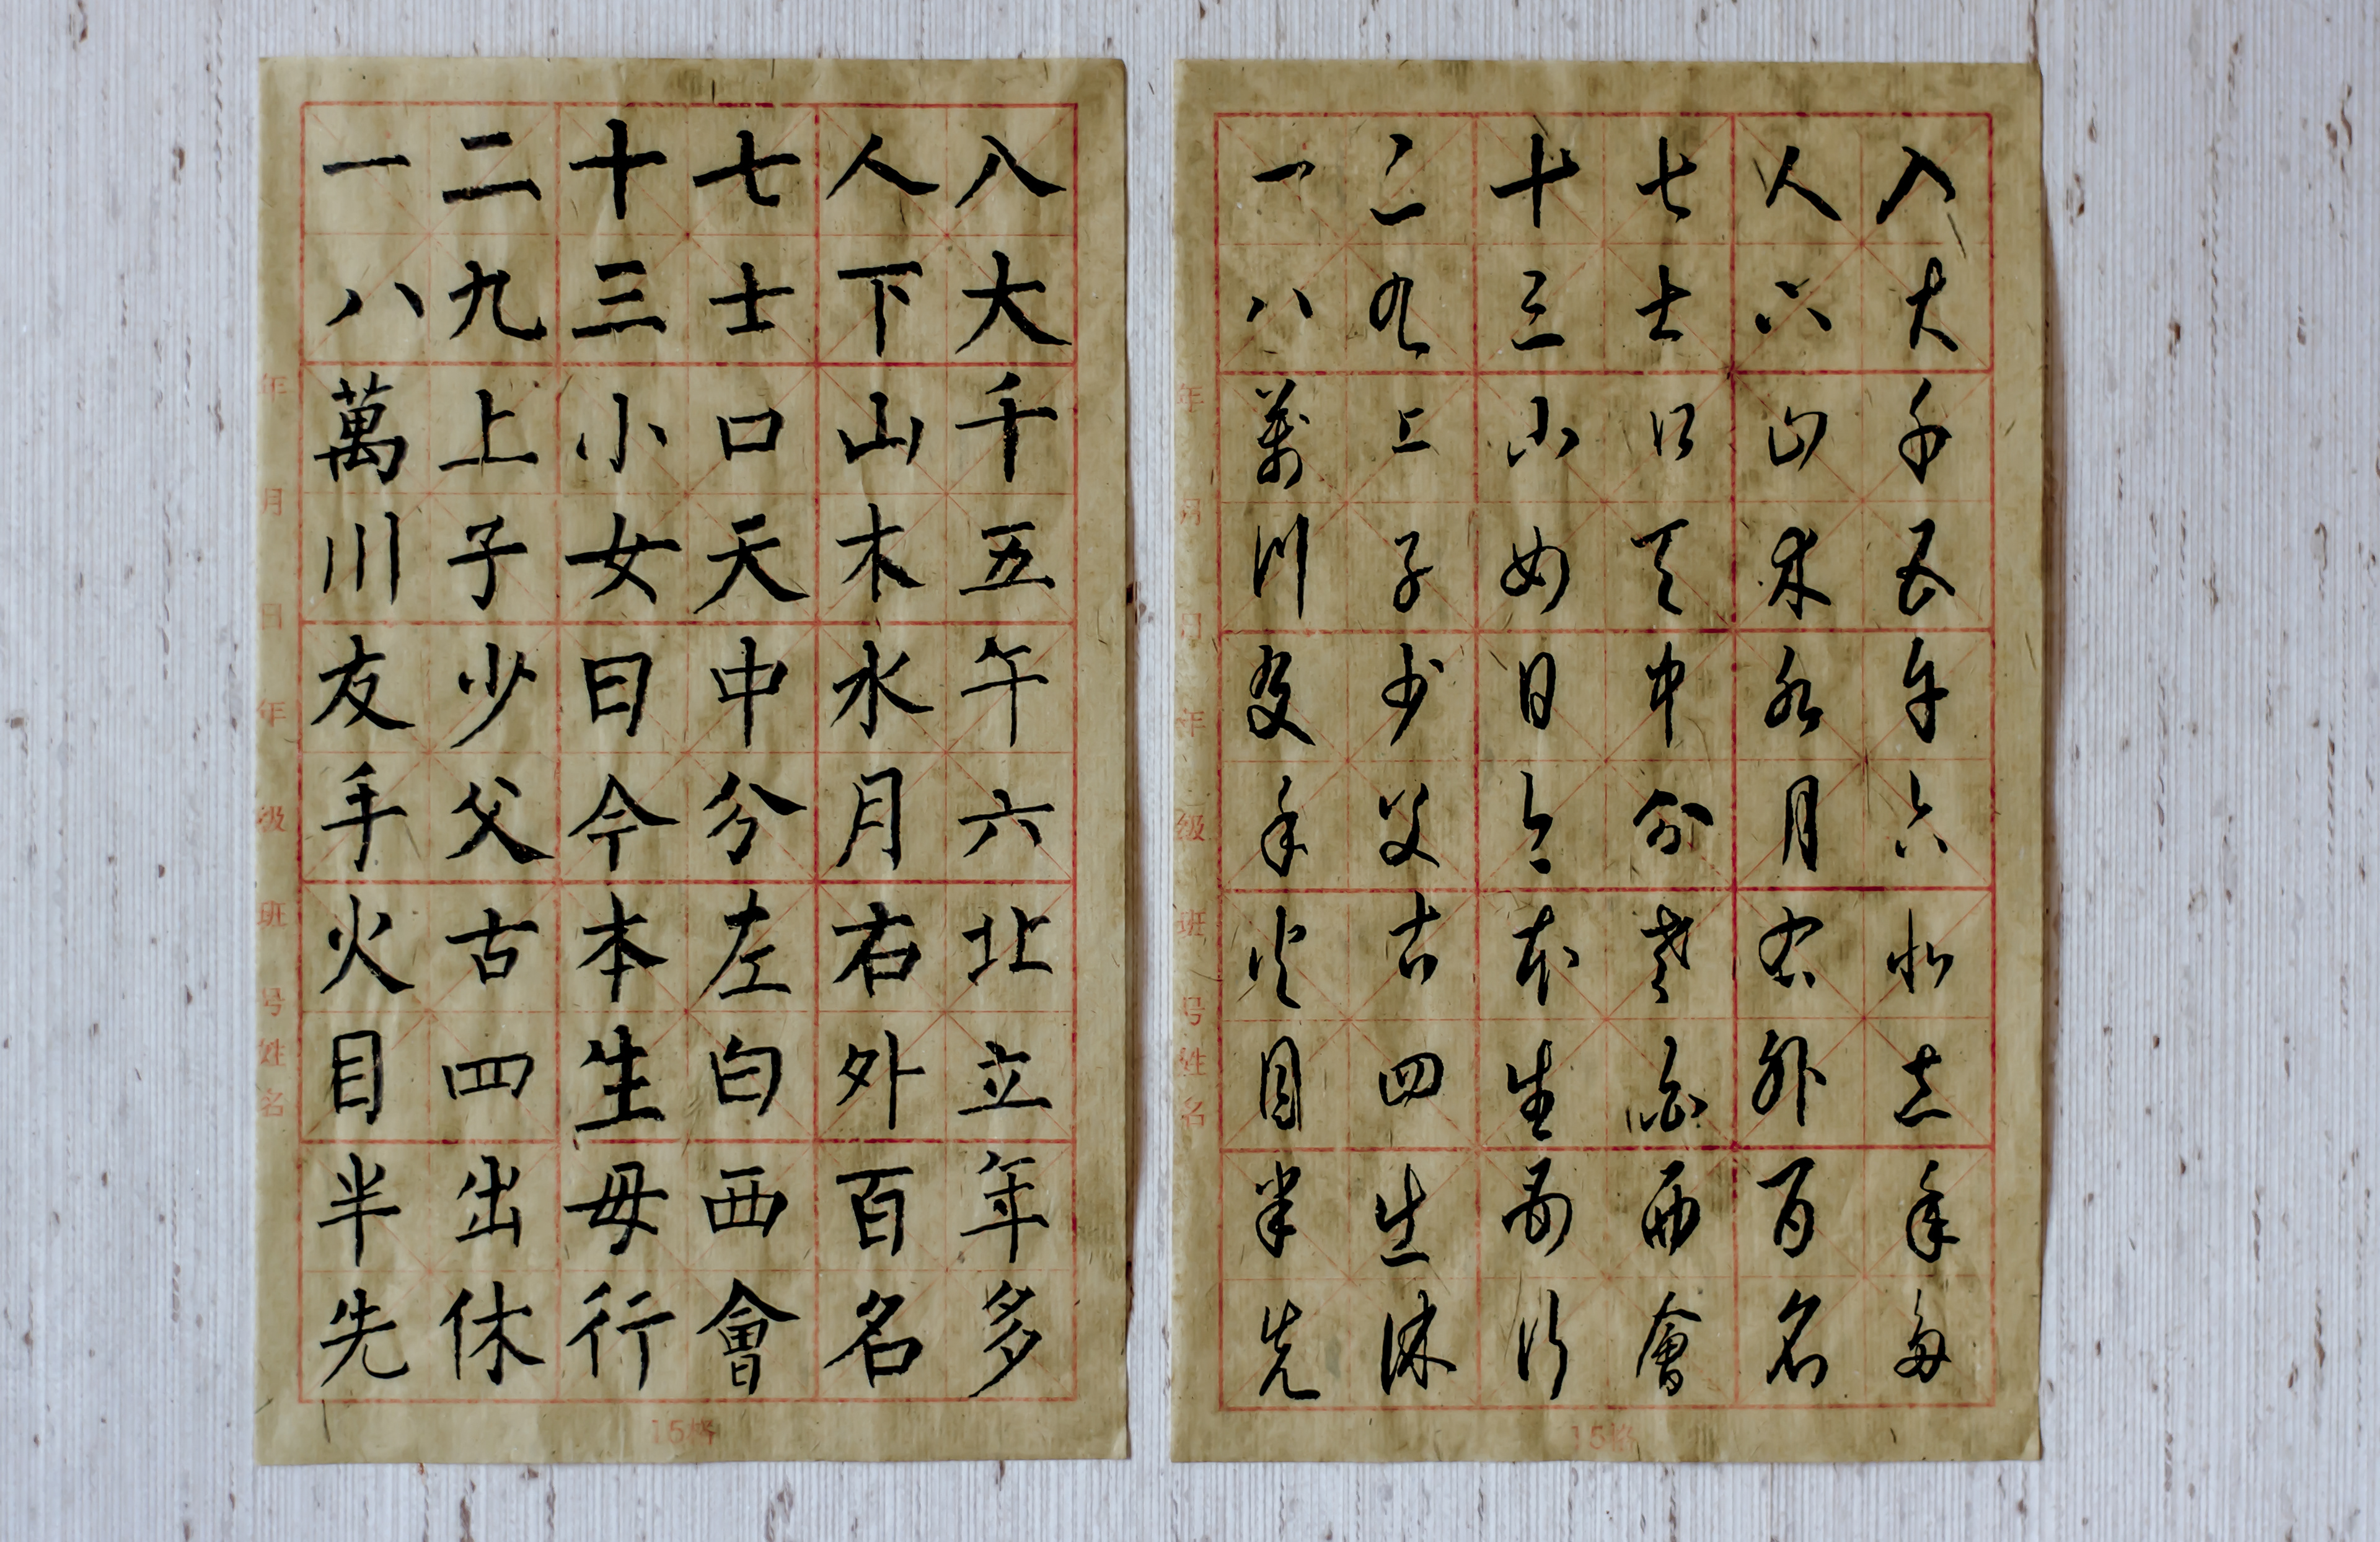 一二十七人八
八九三士下大
萬上小口山千
川子女天木五
友少日中水午
手父今分月六
火古本左右北
目四生白外立
半出母西百年
先休行會名多
年月日年级班号姓名
15格
一二十七人入
八九三士下大
萬上小口山千
川子女天木五
友少日中水午
手父今分月六
火古本左右北
目四生白外立
半出母西百年
先休行會名多
年月日年级班号姓名
15格